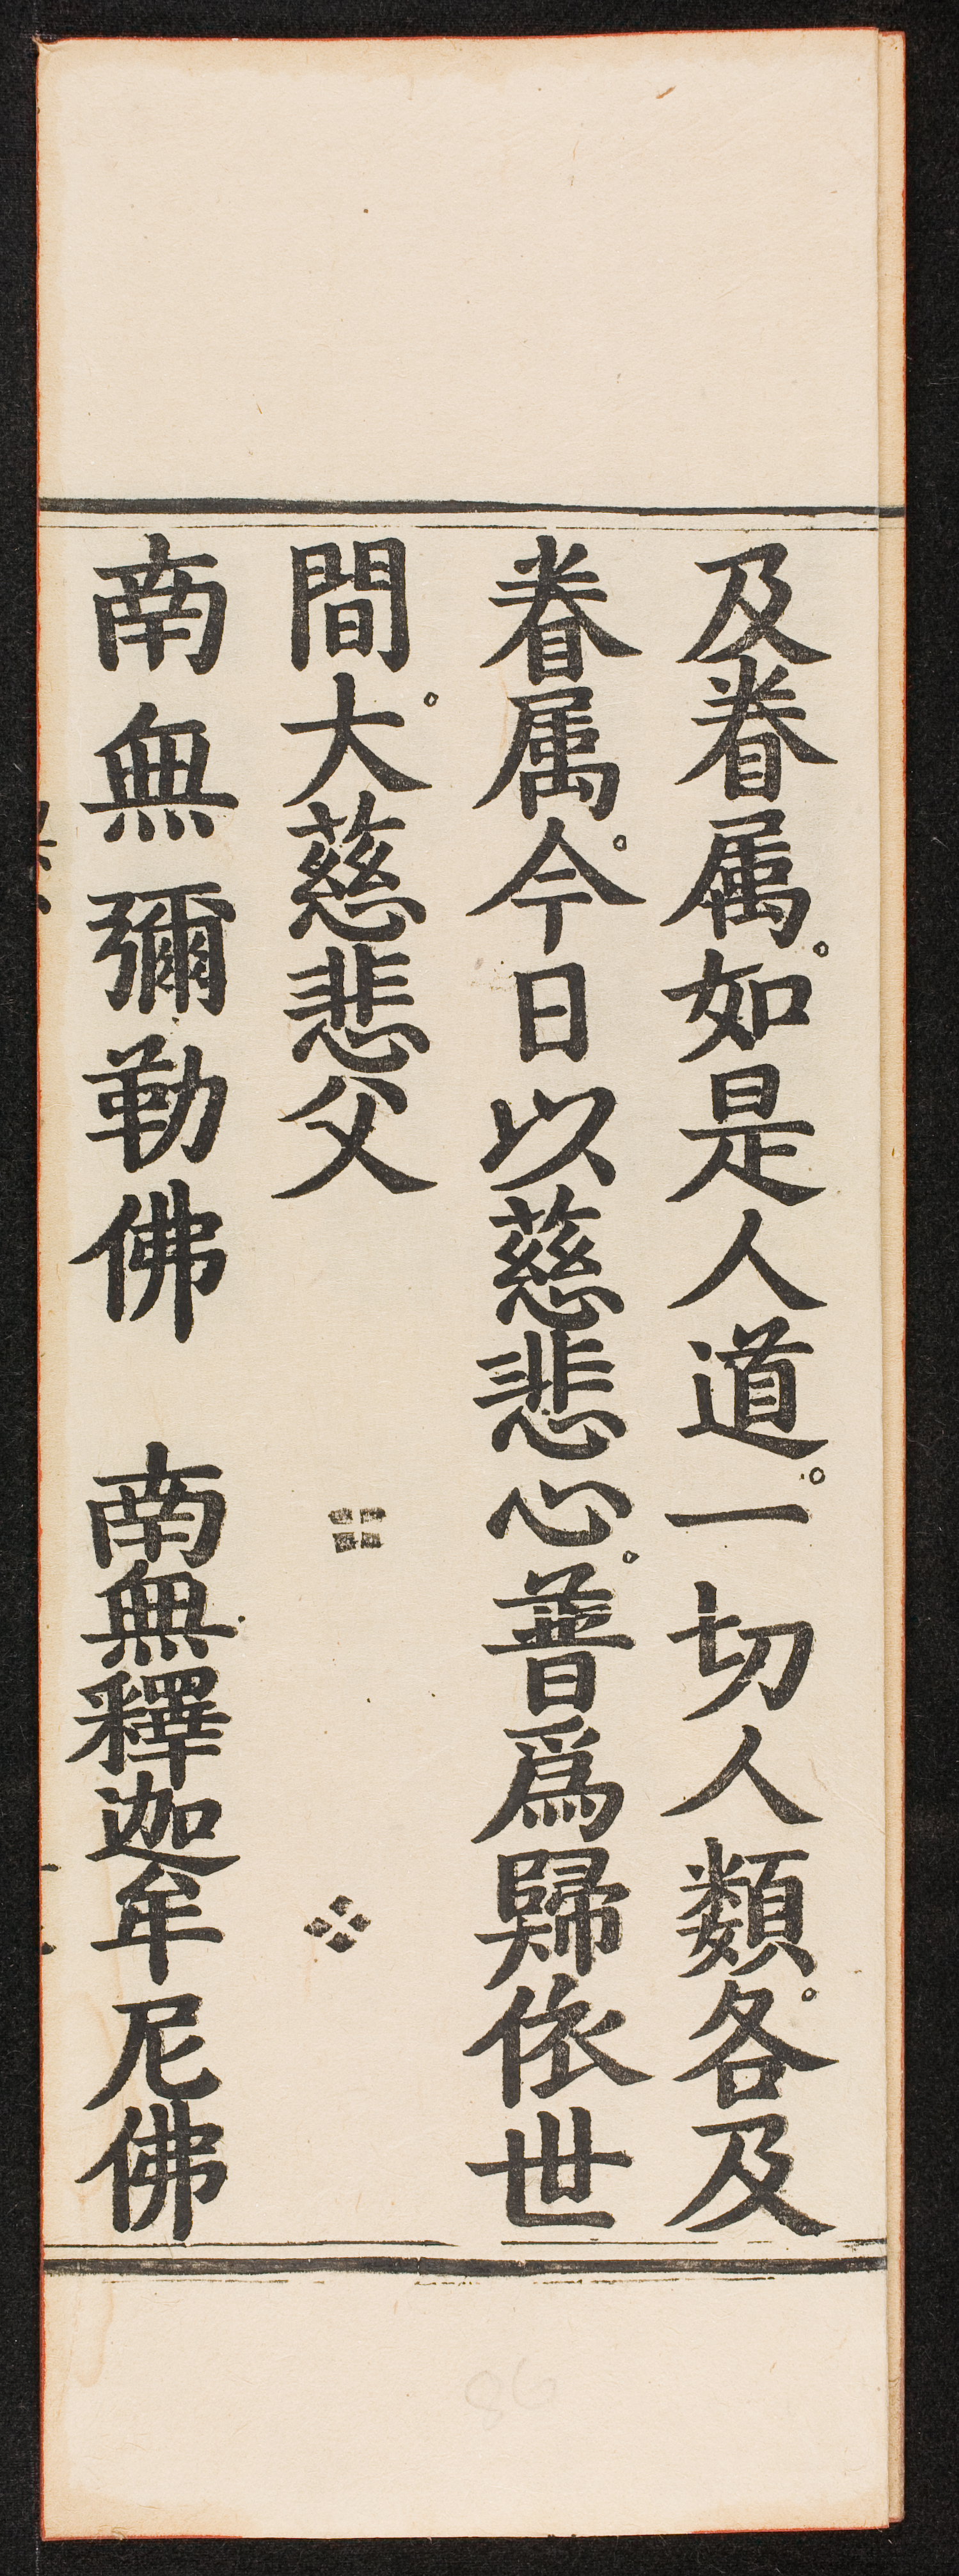 及眷属。如是人道。一切人類。各及
眷属。今日以慈悲心。普爲歸依世
間。大慈悲父
南無彌勒佛　南無釋迦牟尼佛
86